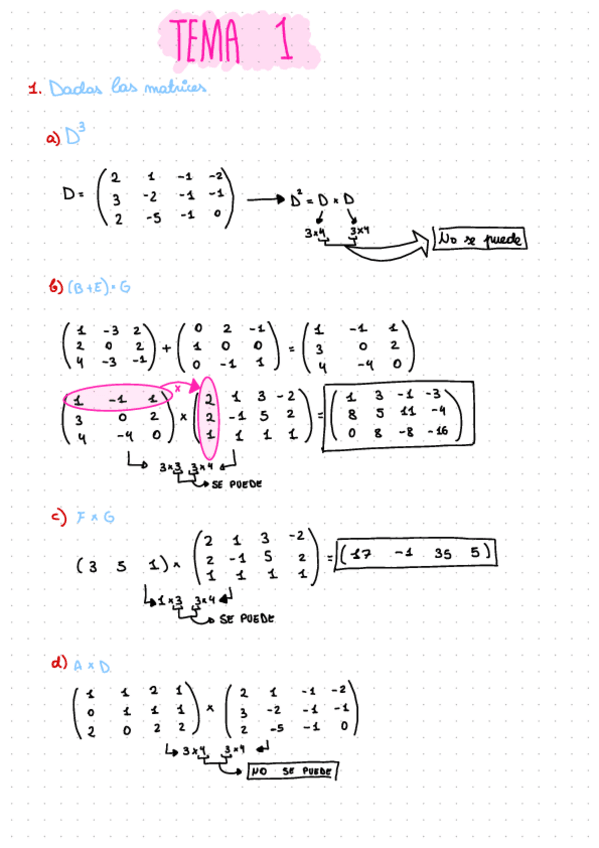 TEMA 1
1. Dadas las matrices
a) D³
D = ( 2 1 -1 -2
3 -2 -1 -1
2 -5 -1 0 ) → D² = D × D
3×4 3×4
No se puede
b) (B+E)·G
( 1 -3 2
2 0 2
4 -3 -1 ) + ( 0 2 -1
1 0 0
0 -1 1 ) = ( 1 -1 1
3 0 2
4 -4 0 )
×
( 1 -1 1
3 0 2
4 -4 0 ) × ( 2 1 3 -2
2 -1 5 2
1 1 1 1 ) = ( 1 3 -1 -3
8 5 11 -4
0 8 -8 -16 )
3×3 3×4
SE PUEDE
c) F×G
(3 5 1) × ( 2 1 3 -2
2 -1 5 2
1 1 1 1 ) = (17 -1 35 5)
1×3 3×4
SE PUEDE
d) A×D
( 1 1 2 1
0 1 1 1
2 0 2 2 ) × ( 2 1 -1 -2
3 -2 -1 -1
2 -5 -1 0 )
3×4 3×4
NO SE PUEDE